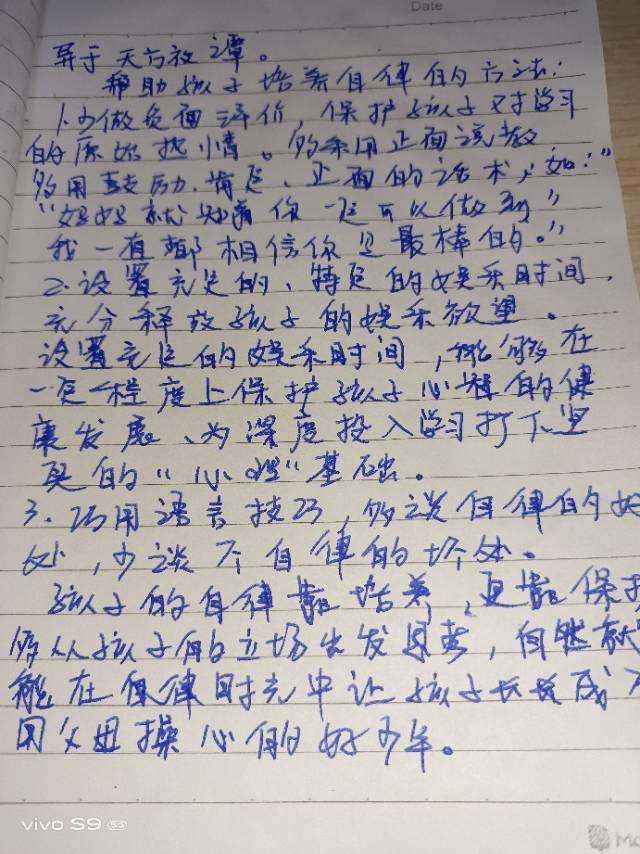 Date
异于天方夜谭。
帮助孩子培养自律的方法:
1.少做负面评价,保护孩子对学习
的原始热情。多采用正面说教
多用鼓励、肯定、正面的话术,如:"
"妈妈就知道你一定可以做到"
我一直都相信你是最棒的。"
2.设置充足的、特定的娱乐时间,
充分释放孩子的娱乐欲望。
设置充足的娱乐时间,能够在
一定程度上保护孩子心理的健
康发展、为深度投入学习打下坚
实的"心性"基础。
3.巧用语言技巧,多谈自律的好
处,少谈不自律的坏处。
孩子的自律靠培养,更靠保护
多从孩子的立场出发思考,自然就
能在自律时光中让孩子长成不
用父母操心的好少年。
vivo S9